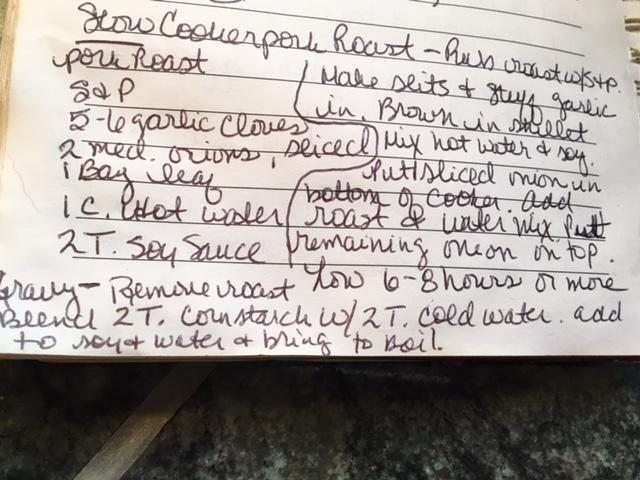 Slow Cooker pork Roast - Rub roast w/S+P.
pork Roast
Make slits & stuff garlic
S&P
in. Brown in skillet
5-6 garlic cloves
Mix hot water & soy.
2 med. onions, sliced
Put sliced onion in
1 Bay leaf
bottom of cooker add
1 C. Hot water
roast & water mix Putt
2 T. Soy Sauce
remaining onion on top.
Low 6-8 hours or more
Gravy - Remove roast
Blend 2T. cornstarch w/ 2T. cold water. add
to soy & water & bring to boil.